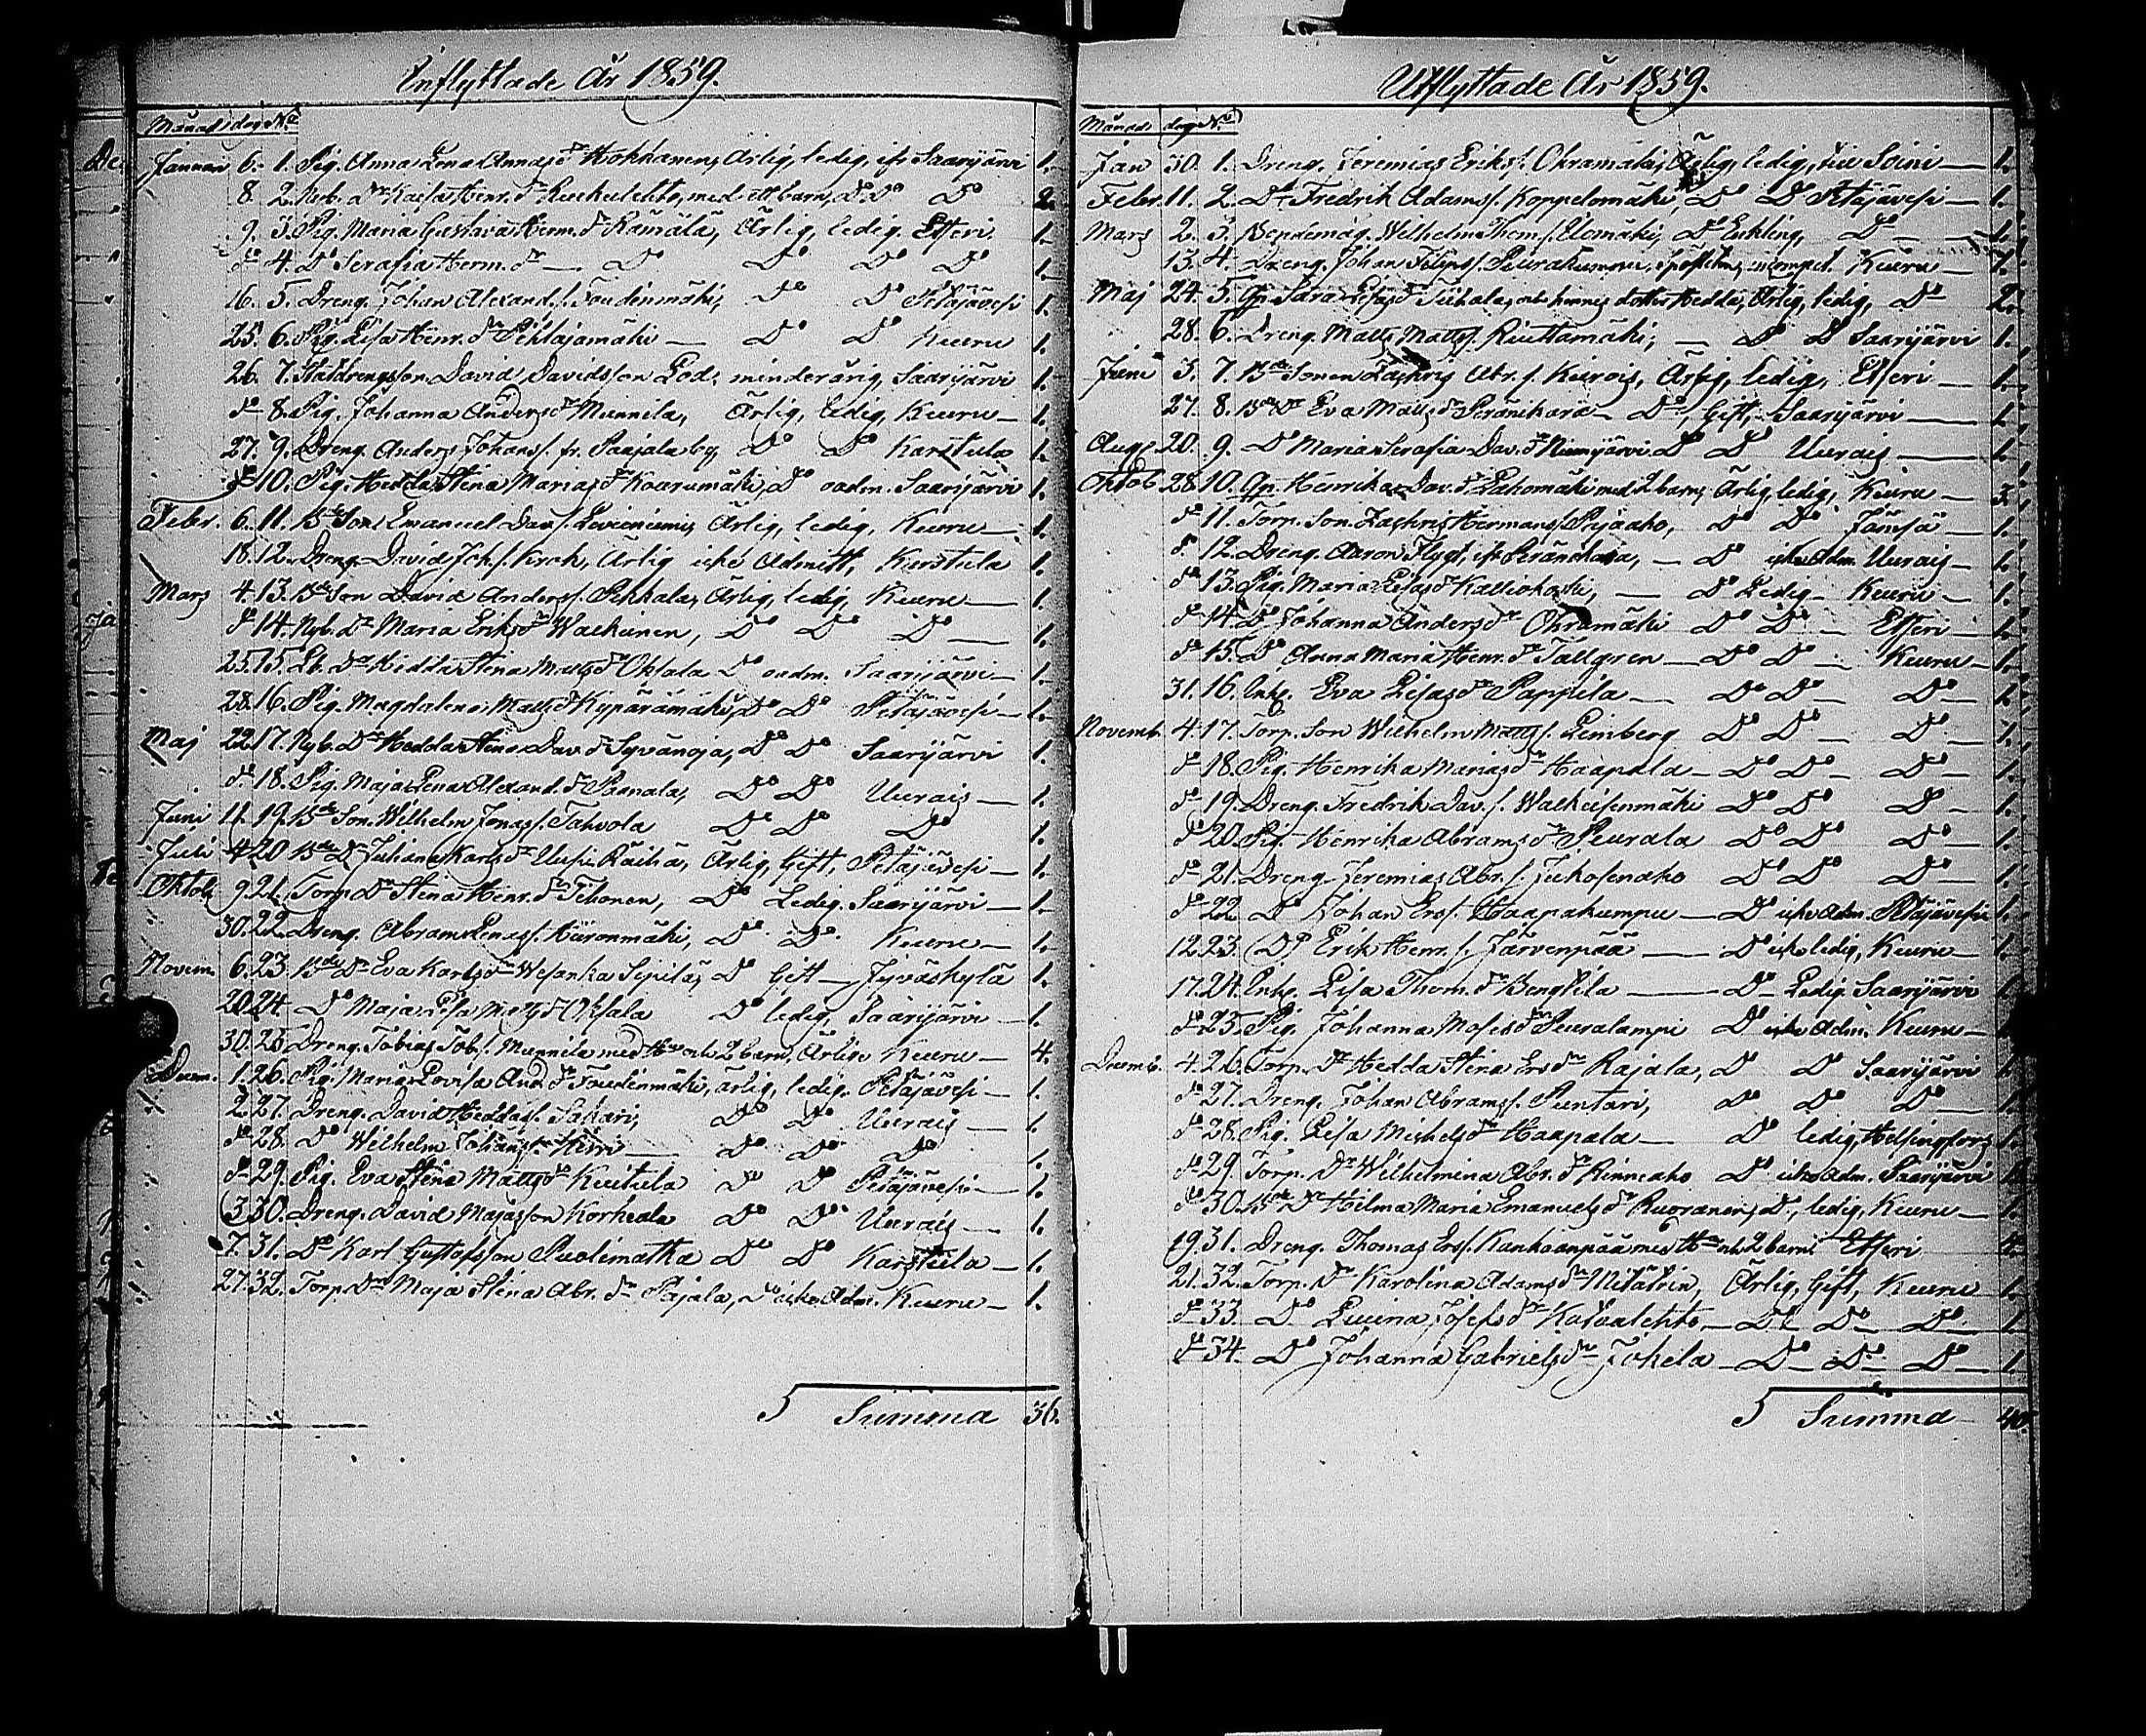 Inflyttade År 1859.
Månad dag No
Januari 6. 1. Pig. Anna Lena Annasdr Hokkanen, Ärlig, ledig, ifr Saarijärvi 1.
8. 2. Nyb. dr Kaisa Henr.dr med ett barn, Do Do Do 2.
9. 3. Pig. Maria Gustava Herm.dr Rämälä, Ärlig, ledig. Etseri. 1.
do 4. Do Serafia Herm.dr — Do Do Do Do 1.
16. 5. Dreng. Johan Alexand.s. Toudinmäki, Do Do Petäjävesi 1.
25. 6. Pig. Lisa Henr.dr Pihlajamäki — Do Do Keuru 1.
26. 7. Statdrengsson David Davidsson Lod, minderårig, Saarijärvi 1.
do 8. Pig. Johanna Andersdr Munnila, Ärlig, ledig, Keuru — 1.
27. 9. Dreng. Anders Johanss. fr. Paajala by, Do Do Karstula 1.
do 10. Pig. Hedda Stina Mariasdr Kaarumäki, Do oadm. Saarijärvi 1.
Febr. 6. 11. Bde Son Emanuel Dav.s. Ärlig, ledig, Keuru — 1.
18. 12. Dreng David Joh.s. Krok, Ärlig icke Admitt, Karstula 1.
Mars 4. 13. Bde Son David Anderss. Pekkala, Ärlig, ledig, Keuru — 1.
do 14. Nyb. Dr Maria Eriksdr Walkunen, Do Do Do — 1.
25. 15. Lb. Dr Hedda Stina Mattsdr Oksala Do oadm. Saarijärvi — 1.
28. 16. Pig. Magdalena Mattsdr Kypärämäki, Do Do Petäjävesi — 1.
Maj 22. 17. Nyb. Dr Hedda Stina Dav.dr Syvänoja, Do Do Saarijärvi 1.
do 18. Pig. Maja Lena Alexand.dr Paanala, Do Do Uurais — 1.
Juni 11. 19. Bde Son. Wilhelm Jonass. Tahvola Do Do Do 1.
Juli 4. 20. Bde Dr Juliana Karlsdr Uusi Räihä, Ärlig, Gift, Petäjävesi — 1.
Oktob. 9. 21. Torp. Dr Stina Henr.dr Tihonen, Do Ledig. Saarijärvi — 1.
30. 22. Dreng. Abram Linass. Kiironmäki, Do Do Keuru — 1.
Novem. 6. 23. Bde Dr Eva Karlsdr Wesanka Sipilä, Do Gift — Jyväskylä 1.
20. 24. Do Maja Lisa Mattsdr Oksala Do ledig, Saarijärvi — 1.
30. 25. Dreng. Tobias Tob.s. Munnila med Hu och 2 barn, Ärlige Keuru — 4.
Decem. 1. 26. Pig. Maria Lovisa And.dr Toudinmäki, ärlig, ledig. Petäjävesi — 1.
2. 27. Dreng. David Heddass. Sakari, Do Do Uurais — 1.
do 28. Do Wilhelm Johanss. Hirvi — Do Do Do 1.
do 29. Pig. Eva Stina Mattsdr Kuitula Do Do Petäjävesi — 1.
3. 30. Dreng. David Majasson Korheala Do Do Uurais — 1.
7. 31. Do Karl Gustafsson Puolimatka Do Do Karstula — 1.
27. 32. Torp. Dr Maja Stina Abr.dr Pajala, Do icke Adm. Keuru — 1.
Summa 36.
Utflyttade År 1859.
Månad dag No
Jan 30. 1. Dreng. Jeremias Eriks. Ohramäki, Ärlig, ledig, till Soini — 1.
Febr. 11. 2. Do Fredrik Adamss. Koppelomäki, Do Do Petäjävesi — 1.
Mars 2. 3. Wilhelm Thom.s. Elomäki, Do Enkling, Do — 1.
13. 4. Dreng. Johan Filipss. Keuru — 1.
Maj 24. 5. Qp. Sara Lisasdr Tiihala, och hennes dotter Hedda, Ärlig, ledig, Do 2.
28. 6. Dreng. Matts Mattss. Riuttamäki, — Do Do Saarijärvi 1.
Juni 3. 7. Bde Sonen Zachris Abr.s. Keirois, Ärlig, ledig, Etseri — 1.
27. 8. Bde Dr Eva Mattsdr Peränikara — Do, Gift, Saarijärvi — 1.
Aug. 20. 9. Do Maria Serafia Dav.dr Niinijärvi Do Do Uurais — 1.
Oktob. 28. 10. Qp. Henrika Dav.dr Lahomäki med 2 barn, Ärlig, ledig, Keuru — 3.
do 11. Torp. Son. Zachris Hermanss. Pajaaho, Do Do Jämsä — 1.
do 12. Dreng. Aaron Flygt, ifr Peränikara, — Do icke Adm. Uurais — 1.
do 13. Pig. Maria Lisasdr Kalliokoski, — Do Ledig — Keuru — 1.
do 14. Do Johanna Andersdr Ohramäki Do Do — Etseri — 1.
do 15. Do Anna Maria Henr.dr Tallgren — Do Do — Keuru — 1.
31. 16. Inh. Eva Lisasdr Pappila — Do Do — Do — 1.
Novemb. 4. 17. Torp. Son Wilhelm Matts s. Limberg Do Do Do — 1.
do 18. Pig. Henrika Mariasdr Haapala — Do Do — Do — 1.
do 19. Dreng. Fredrik Dav.s. Walkeisenmäki Do Do Do — 1.
do 20. Pig. Henrika Abramsdr Peurala Do Do Do — 1.
do 21. Dreng Jeremias Abr.s. Jukosenaho Do Do Do — 1.
do 22. Do Johan Ers.s. Haapakumpu — Do icke Adm. Petäjävesi 1.
12. 23. Do Erik Henr.s. Järvenpää — Do icke ledig, Keuru — 1.
17. 24. Inh. Lisa Thom.dr Bengtila — Do Ledig. Saarijärvi 1.
do 25. Pig. Johanna Mosesdr Peuralampi Do icke Adm. Keuru —
Decemb. 4. 26. Torp. Dr Hedda Stina Ersdr Rajala, Do Do Saarijärvi 1.
do 27. Dreng. Johan Abramss. Puntari, Do Do Do — 1.
do 28. Pig. Lisa Michelsdr Haapala — Do ledig, Helsingfors 1.
do 29. Torp. Dr Wilhelmina Abr.dr Rinneaho Do icke Adm. Saarijärvi 1.
do 30. Bde Dr Hilma Maria Emanuelsdr Ruoranen, Do, ledig, Keuru — 1.
19. 31. Dreng. Thomas Ers.s. Kankaanpää med Hu och 2 barn. Etseri 4.
21. 32. Torp. Dr Karolina Adamsdr Ärlig, Gift, Keuru 1.
do 33. Do Lucina Josefsdr Do Do Do 1.
do 34. Do Johanna Gabrielsdr Jokela — Do Do Do — 1.
Summa 40.